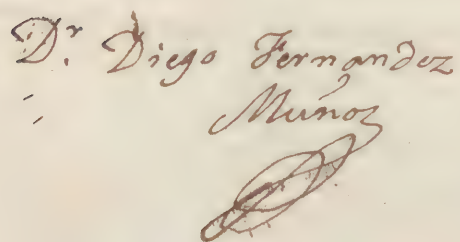 Dr. Diego Fernandez
Muñoz